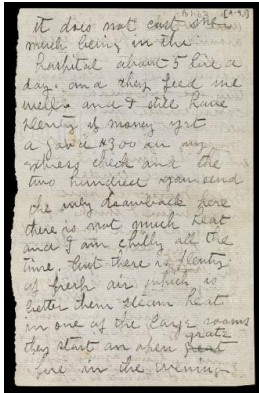 it does not cost me
much being in the
hospital about 5 lire a
day. and they feed me
well. and I still have
plenty of money yet
a good $300 an my
express check and the
two hundred you send
the only drawback here
there is not much heat
and I am chilly all the
time. but there is plenty
of fresh air which is
better then steam heat
in one of the large rooms
they start an open grate
fire in the evening